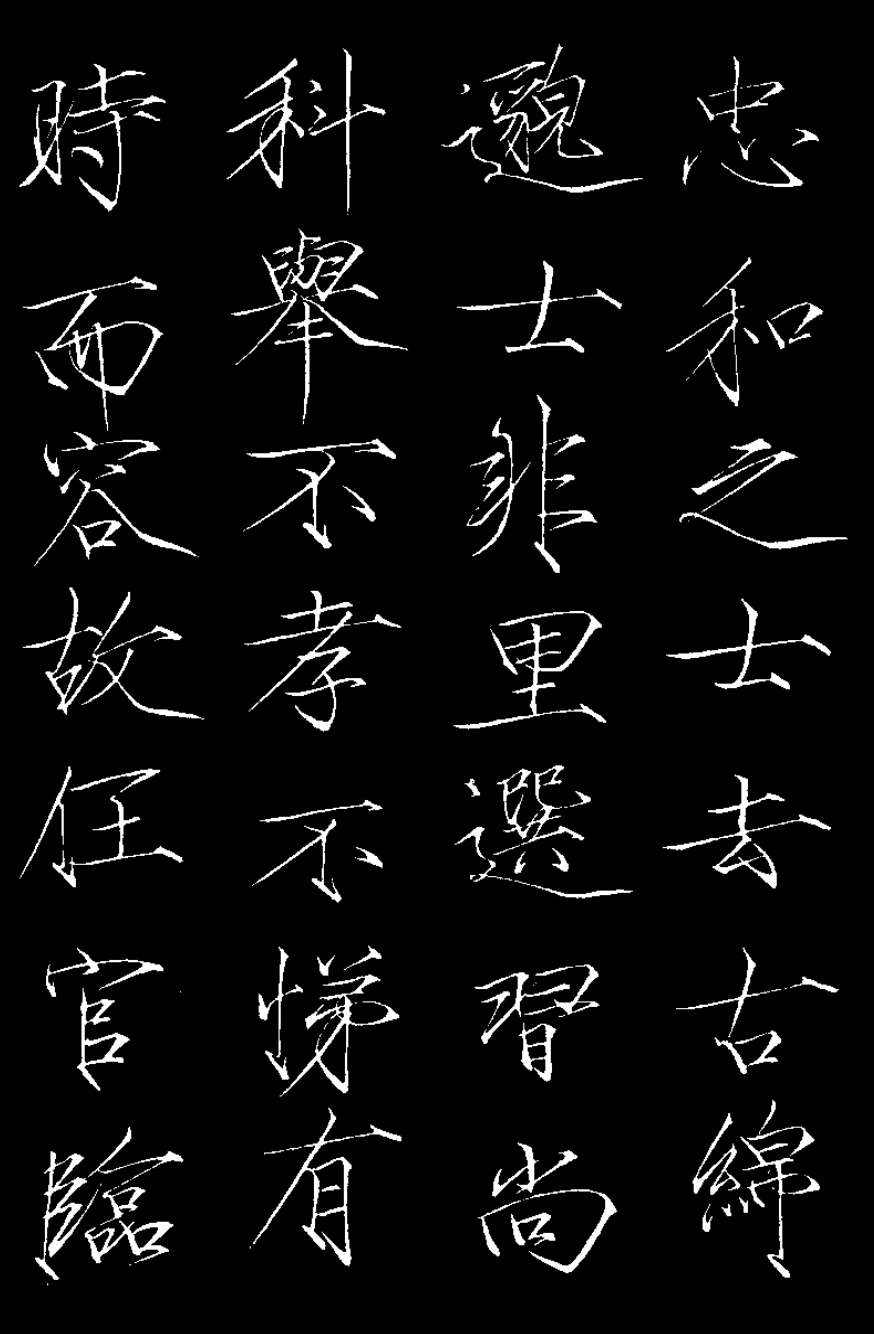 忠和之士去古綿
邈士非里選習尚
科舉不孝不悌有
時而容故任官臨